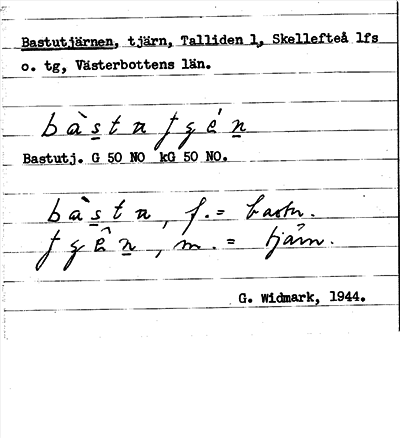 Bastutjärnen, tjärn, Talliden 1, Skellefteå lfs
o. tg, Västerbottens län.
Bastutj. G 50 NO kG 50 NO.
f. = bastu.
m. = tjärn.
G. Widmark, 1944.